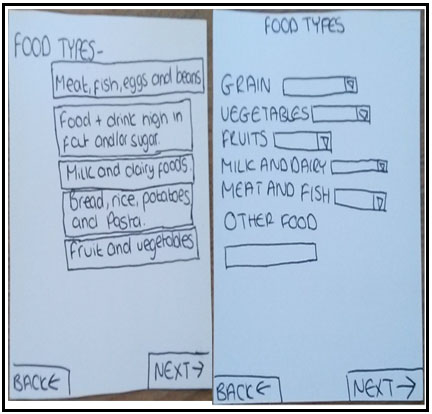 FOOD TYPES-
Meat, fish, eggs and beans
Food + drink high in
fat and/or sugar.
Milk and dairy foods.
Bread, rice, potatoes
and Pasta.
Fruit and vegetables
BACK←
NEXT→
FOOD TYPES
GRAIN
VEGETABLES
FRUITS
MILK AND DAIRY
MEAT AND FISH
OTHER FOOD
BACK←
NEXT→